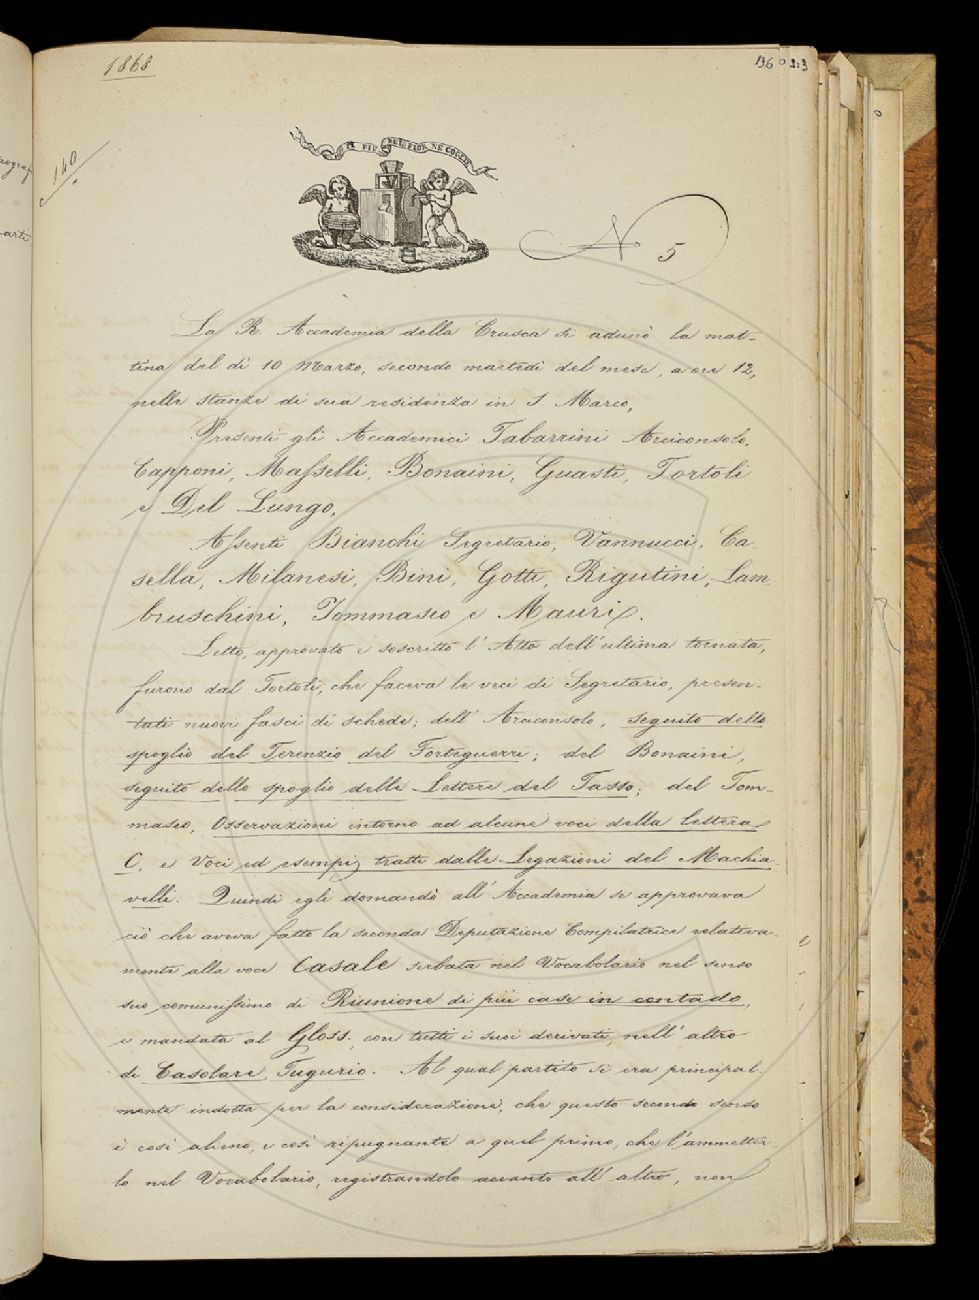 1868
136 213
140
IL PIÙ BEL FIOR NE COGLIE
N 5
La R. Accademia della Crusca si adunò la mat-
tina del dì 10 Marzo, secondo martedì del mese, a ore 12,
nelle stanze di sua residenza in S. Marco.
Presenti gli Accademici Tabarrini Arciconsolo,
Capponi, Masselli, Bonaini, Guasti, Tortoli
e Del Lungo.
Assenti Bianchi Segretario, Vannucci, Ca
sella, Milanesi, Bini, Gotti, Rigutini, Lam
bruschini, Tommaseo e Mauri.
Letto, approvato e soscritto l'Atto dell'ultima tornata,
furono dal Tortoli, che faceva le veci di Segretario, presen-
tati nuovi fasci di schede; dell'Arciconsolo, seguito dello
spoglio del Terenzio del Forteguerri; del Bonaini,
seguito dello spoglio delle Lettere del Tasso; del Tom-
maseo, Osservazioni intorno ad alcune voci della lettera
C, e Voci ed esempj tratti dalle Legazioni del Machia
velli. Quindi egli domandò all'Accademia se approvava
ciò che aveva fatto la seconda Deputazione Compilatrice relativa-
mente alla voce Casale serbata nel Vocabolario nel senso
suo comunissimo di Riunione di più case in contado,
e mandata al Gloss. con tutti i suoi derivati, nell'altro
di Casolare, Tugurio. Al qual partito si era principal-
mente indotta per la considerazione, che questo secondo senso
è così alieno, e così ripugnante a quel primo, che l'ammetter
lo nel Vocabolario, registrandolo accanto all'altro, non